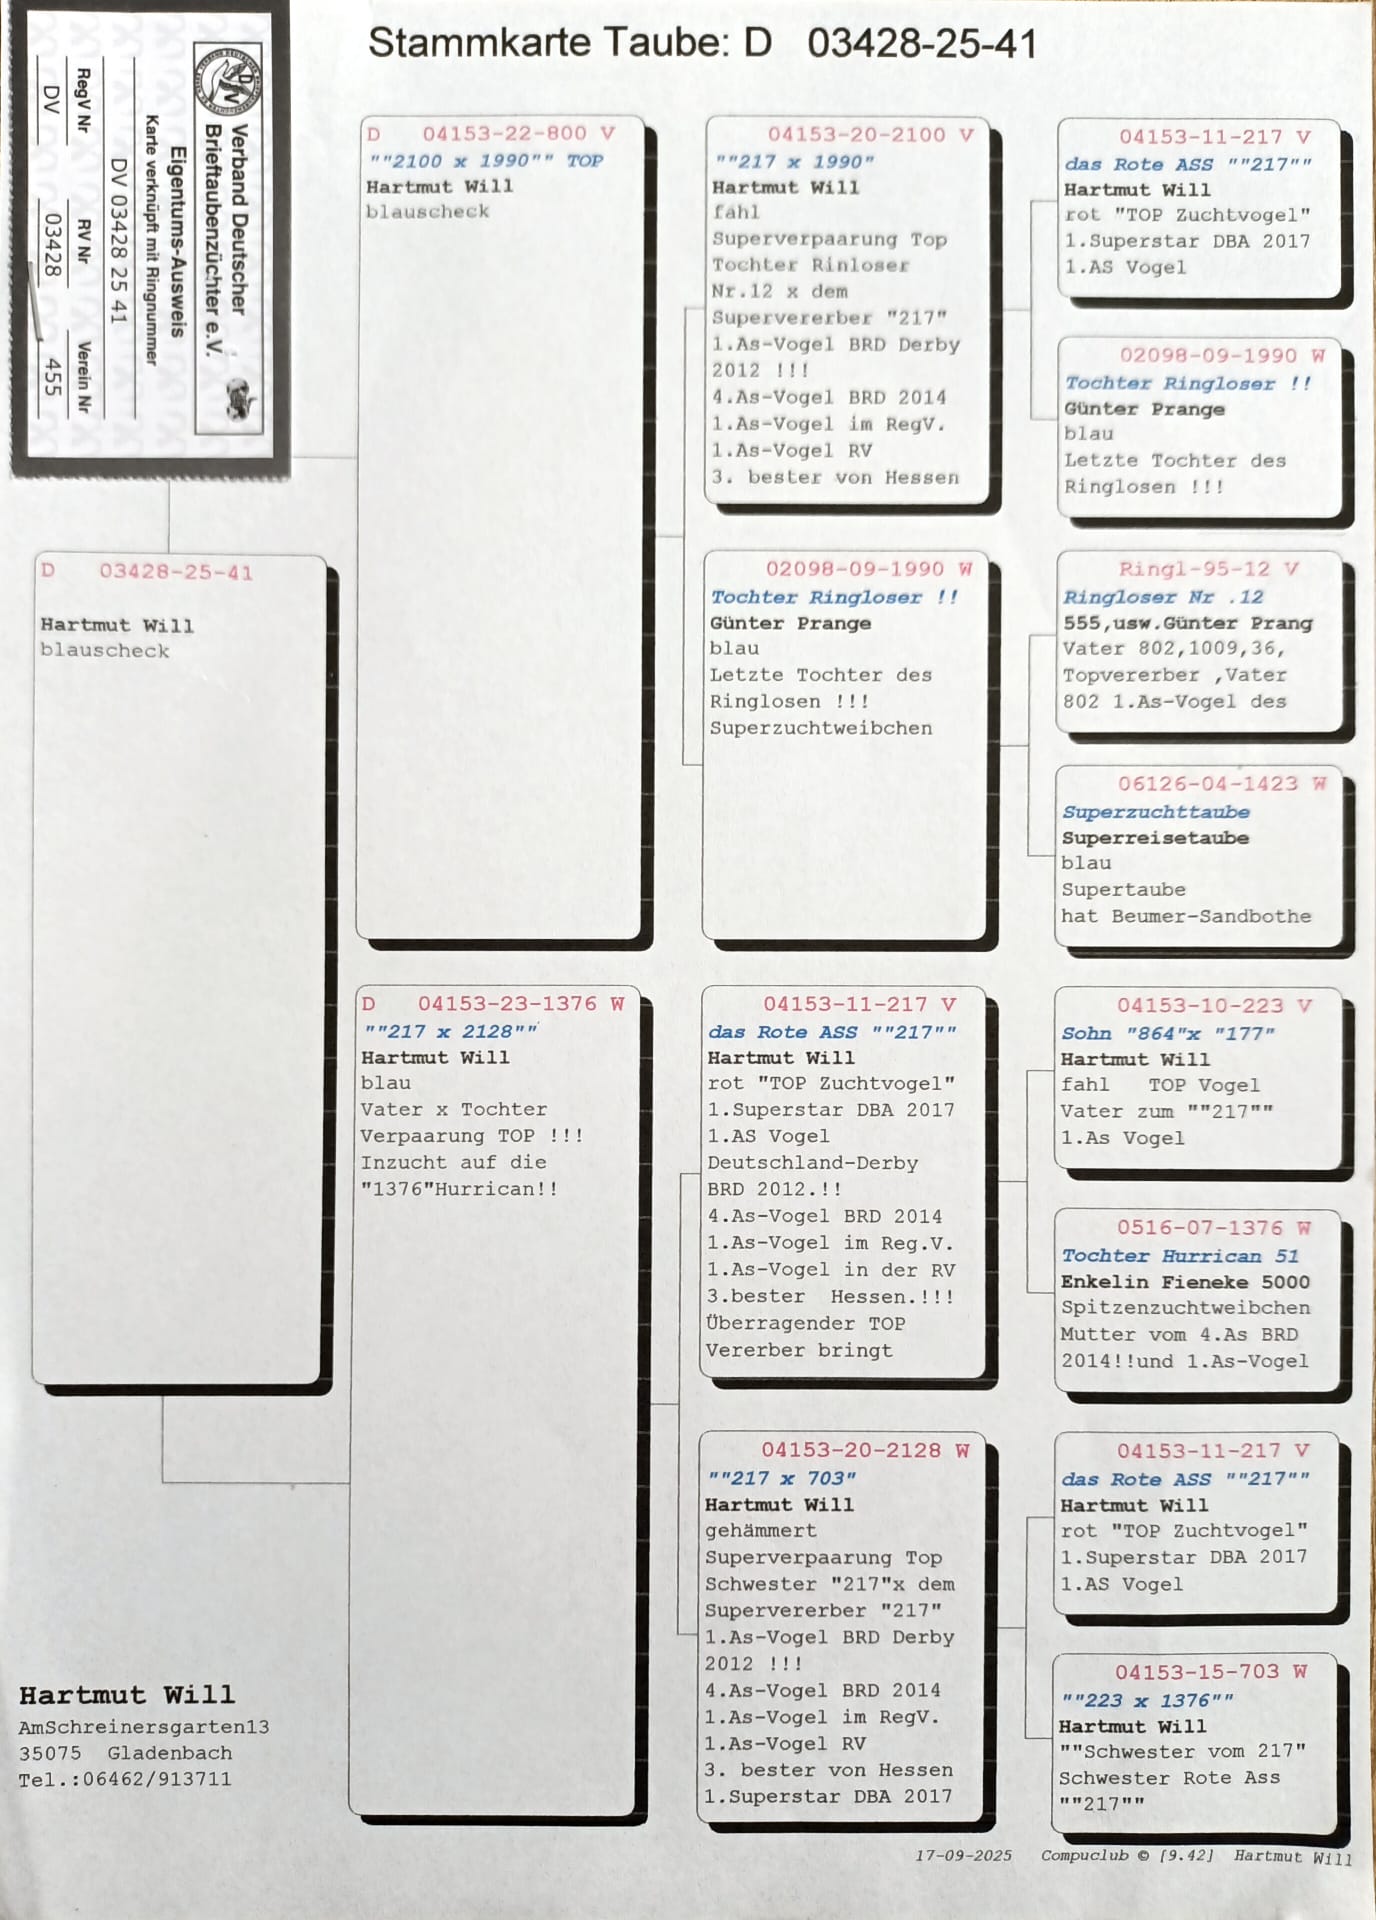 Stammkarte Taube: D 03428-25-41
Verband Deutscher
Brieftaubenzüchter e.V.
Eigentums-Ausweis
Karte verknüpft mit Ringnummer
DV 03428 25 41
RegV Nr RV Nr Verein Nr
DV 03428 455
D 03428-25-41
Hartmut Will
blauscheck
D 04153-22-800 V
""2100 x 1990"" TOP
Hartmut Will
blauscheck
D 04153-23-1376 W
""217 x 2128""
Hartmut Will
blau
Vater x Tochter
Verpaarung TOP !!!
Inzucht auf die
"1376"Hurrican!!
04153-20-2100 V
""217 x 1990"
Hartmut Will
fahl
Superverpaarung Top
Tochter Rinloser
Nr.12 x dem
Supervererber "217"
1.As-Vogel BRD Derby
2012 !!!
4.As-Vogel BRD 2014
1.As-Vogel im RegV.
1.As-Vogel RV
3. bester von Hessen
02098-09-1990 W
Tochter Ringloser !!
Günter Prange
blau
Letzte Tochter des
Ringlosen !!!
Superzuchtweibchen
04153-11-217 V
das Rote ASS ""217""
Hartmut Will
rot "TOP Zuchtvogel"
1.Superstar DBA 2017
1.AS Vogel
Deutschland-Derby
BRD 2012.!!
4.As-Vogel BRD 2014
1.As-Vogel im Reg.V.
1.As-Vogel in der RV
3.bester Hessen.!!!
Überragender TOP
Vererber bringt
04153-20-2128 W
""217 x 703"
Hartmut Will
gehämmert
Superverpaarung Top
Schwester "217"x dem
Supervererber "217"
1.As-Vogel BRD Derby
2012 !!!
4.As-Vogel BRD 2014
1.As-Vogel im RegV.
1.As-Vogel RV
3. bester von Hessen
1.Superstar DBA 2017
04153-11-217 V
das Rote ASS ""217""
Hartmut Will
rot "TOP Zuchtvogel"
1.Superstar DBA 2017
1.AS Vogel
02098-09-1990 W
Tochter Ringloser !!
Günter Prange
blau
Letzte Tochter des
Ringlosen !!!
Ringl-95-12 V
Ringloser Nr .12
555,usw.Günter Prang
Vater 802,1009,36,
Topvererber ,Vater
802 1.As-Vogel des
06126-04-1423 W
Superzuchttaube
Superreisetaube
blau
Supertaube
hat Beumer-Sandbothe
04153-10-223 V
Sohn "864"x "177"
Hartmut Will
fahl TOP Vogel
Vater zum ""217""
1.As Vogel
0516-07-1376 W
Tochter Hurrican 51
Enkelin Fieneke 5000
Spitzenzuchtweibchen
Mutter vom 4.As BRD
2014!!und 1.As-Vogel
04153-11-217 V
das Rote ASS ""217""
Hartmut Will
rot "TOP Zuchtvogel"
1.Superstar DBA 2017
1.AS Vogel
04153-15-703 W
""223 x 1376""
Hartmut Will
""Schwester vom 217"
Schwester Rote Ass
""217""
Hartmut Will
AmSchreinersgarten13
35075 Gladenbach
Tel.:06462/913711
17-09-2025 Compuclub © [9.42] Hartmut Will